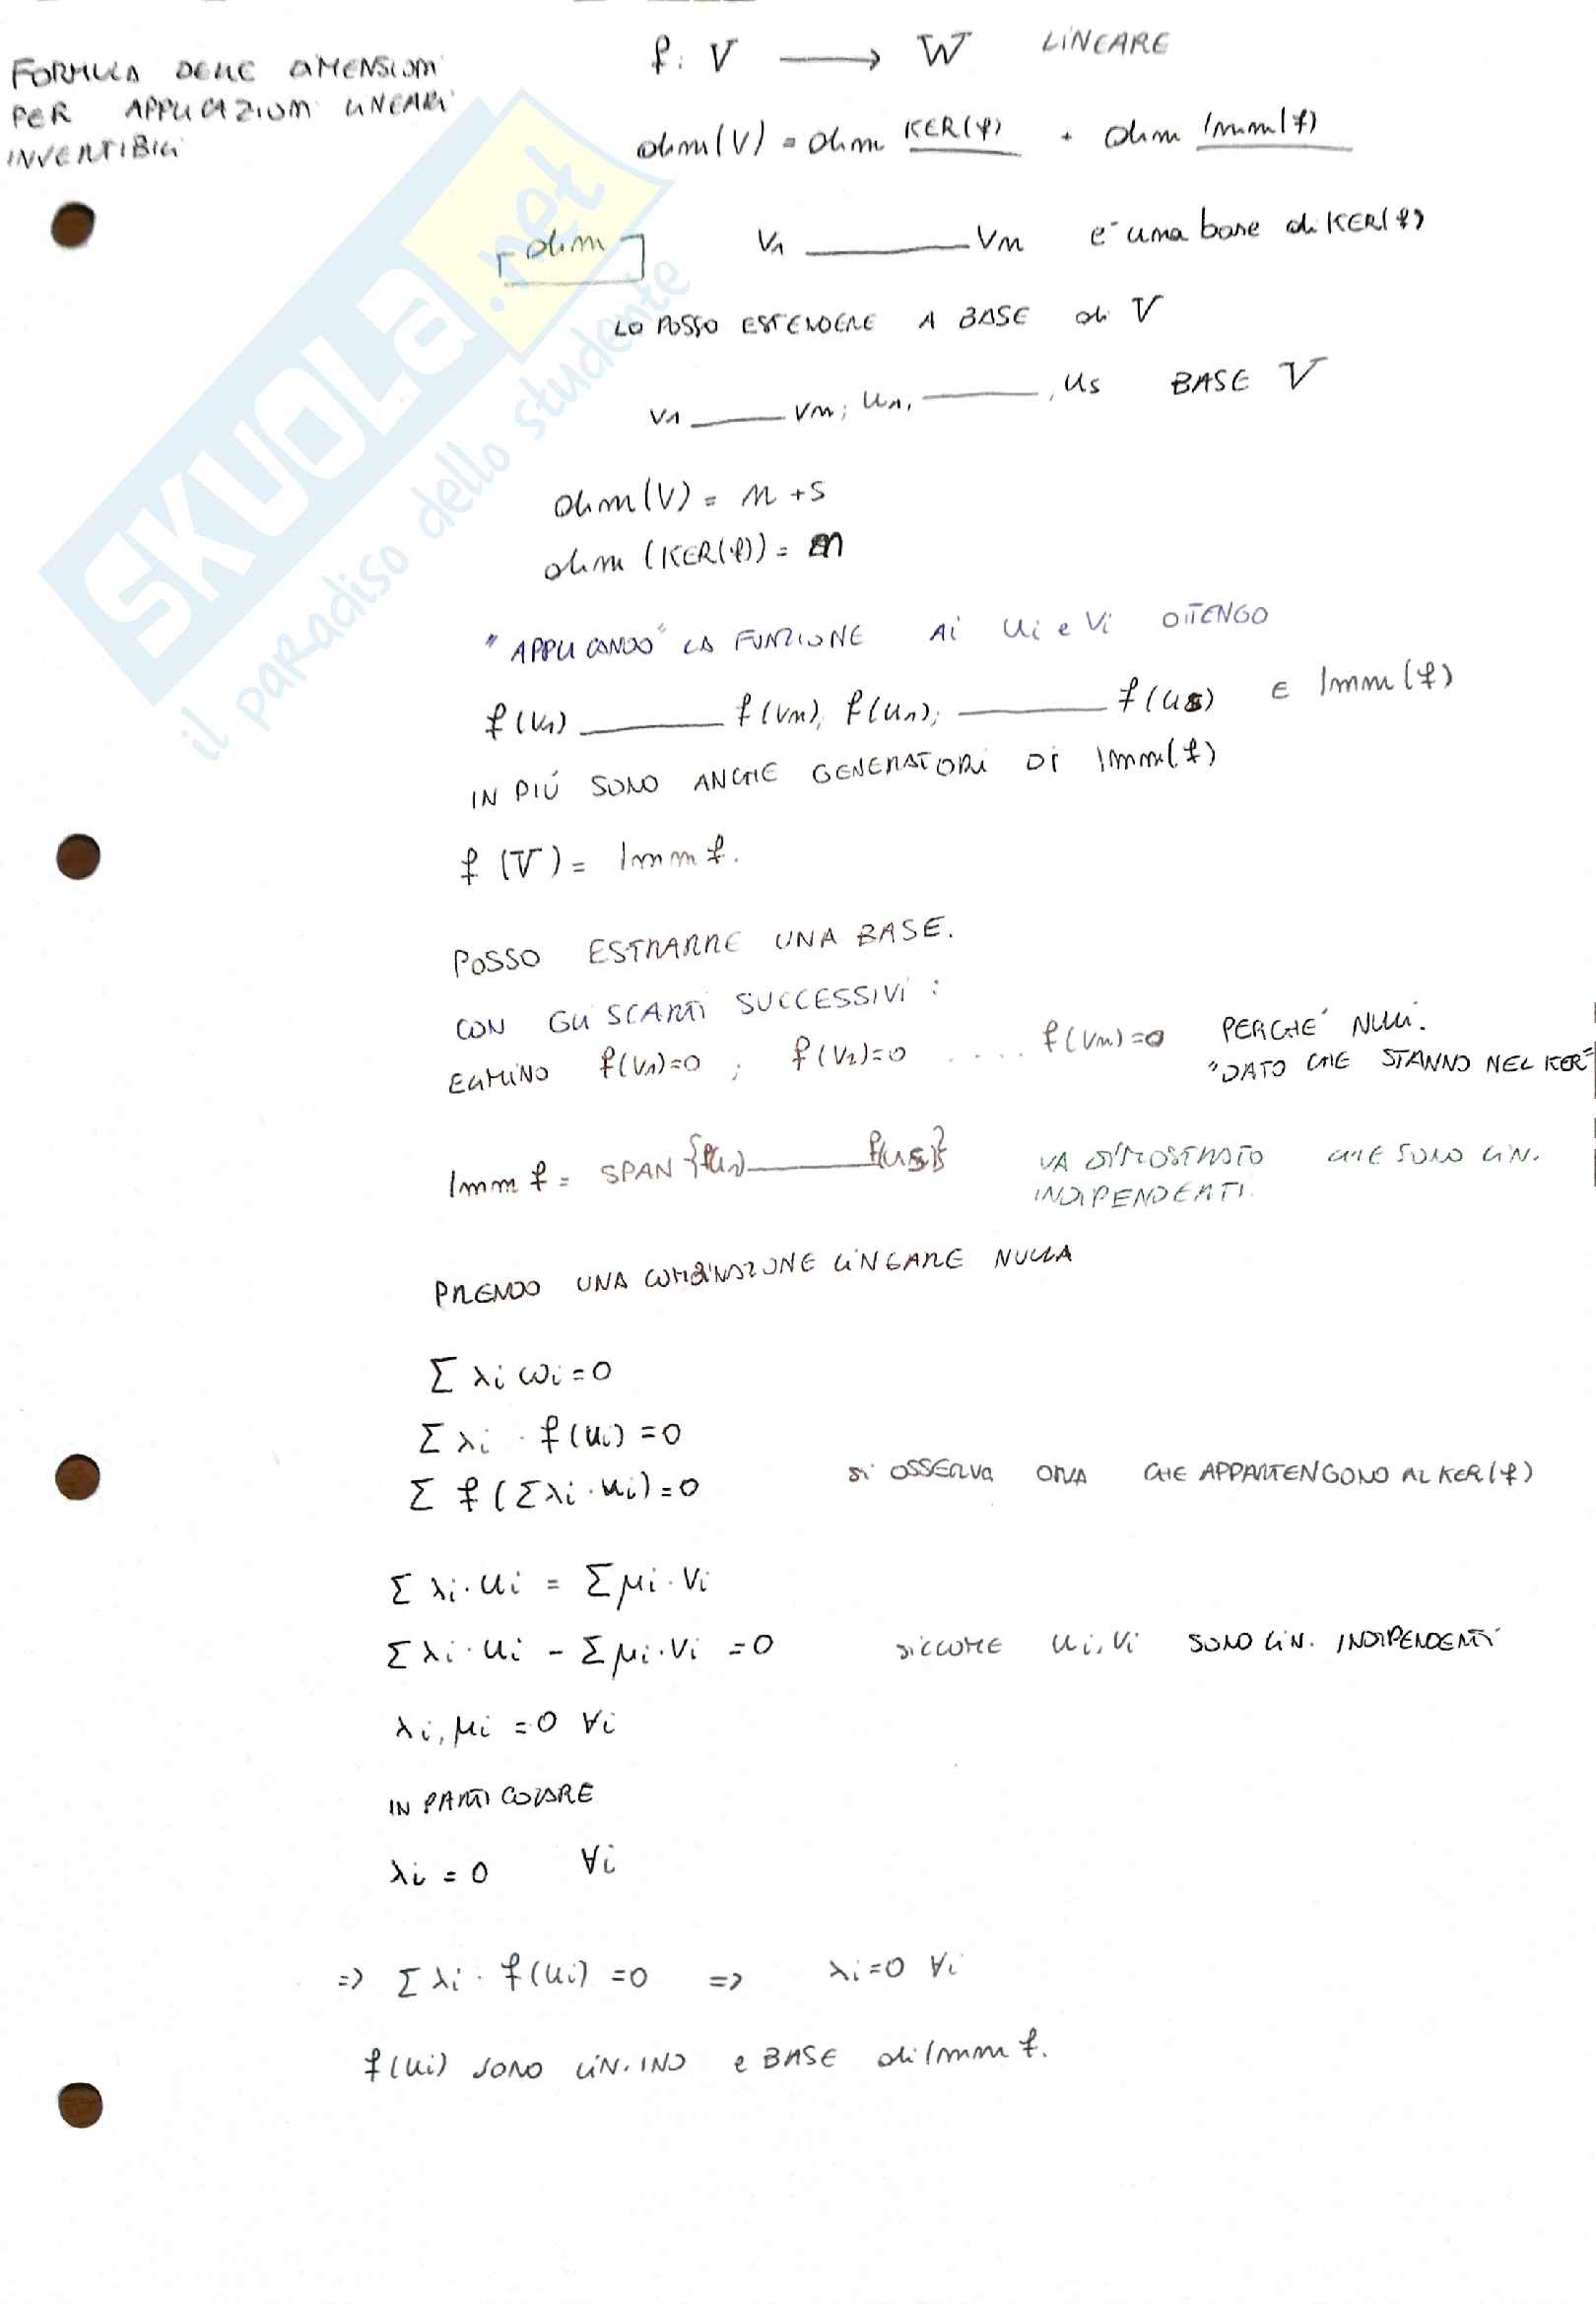 FORMULA DELLE DIMENSIONI
PER APPLICAZIONI LINEARI
INVERTIBILI
f: V → W LINEARE
dim(V) = dim KER(f) + dim Imm(f)
dim
v1 ——— vn è una base di KER(f)
LO POSSO ESTENDERE A BASE di V
v1 ——— vn; u1, ———, us BASE V
dim(V) = n + s
dim (KER(f)) = n
"APPLICANDO" LA FUNZIONE Ai Ui e Vi OTTENGO
f(v1) ——— f(vn), f(u1); ——— f(us) ∈ Imm(f)
IN PIÚ SONO ANCHE GENERATORI DI Imm(f)
f(V) = Imm f.
POSSO ESTRARRE UNA BASE.
CON GLI SCARTI SUCCESSIVI :
ELIMINO f(v1)=0 ; f(v2)=0 .... f(vn)=0 PERCHÉ NULLI.
"DATO CHE STANNO NEL KER"
Imm f = SPAN {f(u1) ——— f(us)} VA DIMOSTRATO CHE SONO LIN.
INDIPENDENTI.
PRENDO UNA COMBINAZIONE LINEARE NULLA
Σ λi ωi = 0
Σ λi · f(ui) = 0
Σ f(Σ λi · ui) = 0 si OSSERVA ORA CHE APPARTENGONO AL KER(f)
Σ λi · ui = Σ μi · vi
Σ λi · ui - Σ μi · vi = 0 SICCOME ui, vi SONO LIN. INDIPENDENTI
λi, μi = 0 ∀i
IN PARTICOLARE
λi = 0 ∀i
=> Σ λi · f(ui) = 0 => λi = 0 ∀i
f(ui) SONO LIN. IND e BASE di Imm f.
SKUOLA.net
il paradiso dello studente